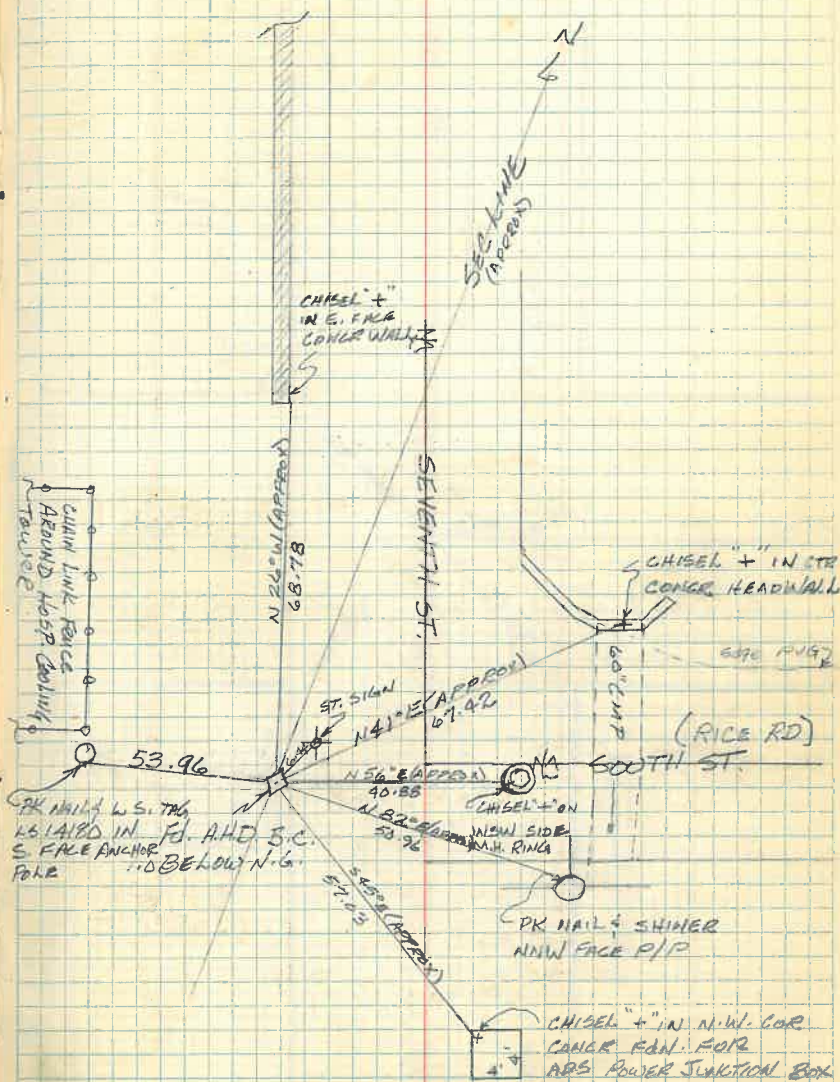 N
SEC. LINE
(APPROX)
CHISEL "+"
IN E. FACE
CONCR WALL
N 26° W (APPROX)
68.78
SEVENTH ST.
CHAIN LINK FENCE
AROUND HOSP COOLING
TOWER
CHISEL "+" IN CTR
CONCR HEADWALL
60" CMP
(RICE RD)
SOUTH ST.
ST. SIGN
N 41° E (APPROX)
67.42
53.96
N 56° E (APPROX)
40.88
CHISEL "+" ON
SIDE
M.H. RING
N 82° E (APPROX)
PK NAIL & L.S. TAG
LS 14180 IN
S. FACE ANCHOR
POLE
Fd. A.H.D. B.C.
BELOW N.G.
S 45° E (APPROX)
57.03
PK NAIL & SHINER
NNW FACE P/P
CHISEL "+" IN N.W. COR
CONCR FDN. FOR
APS POWER JUNCTION BOX
4'
4'